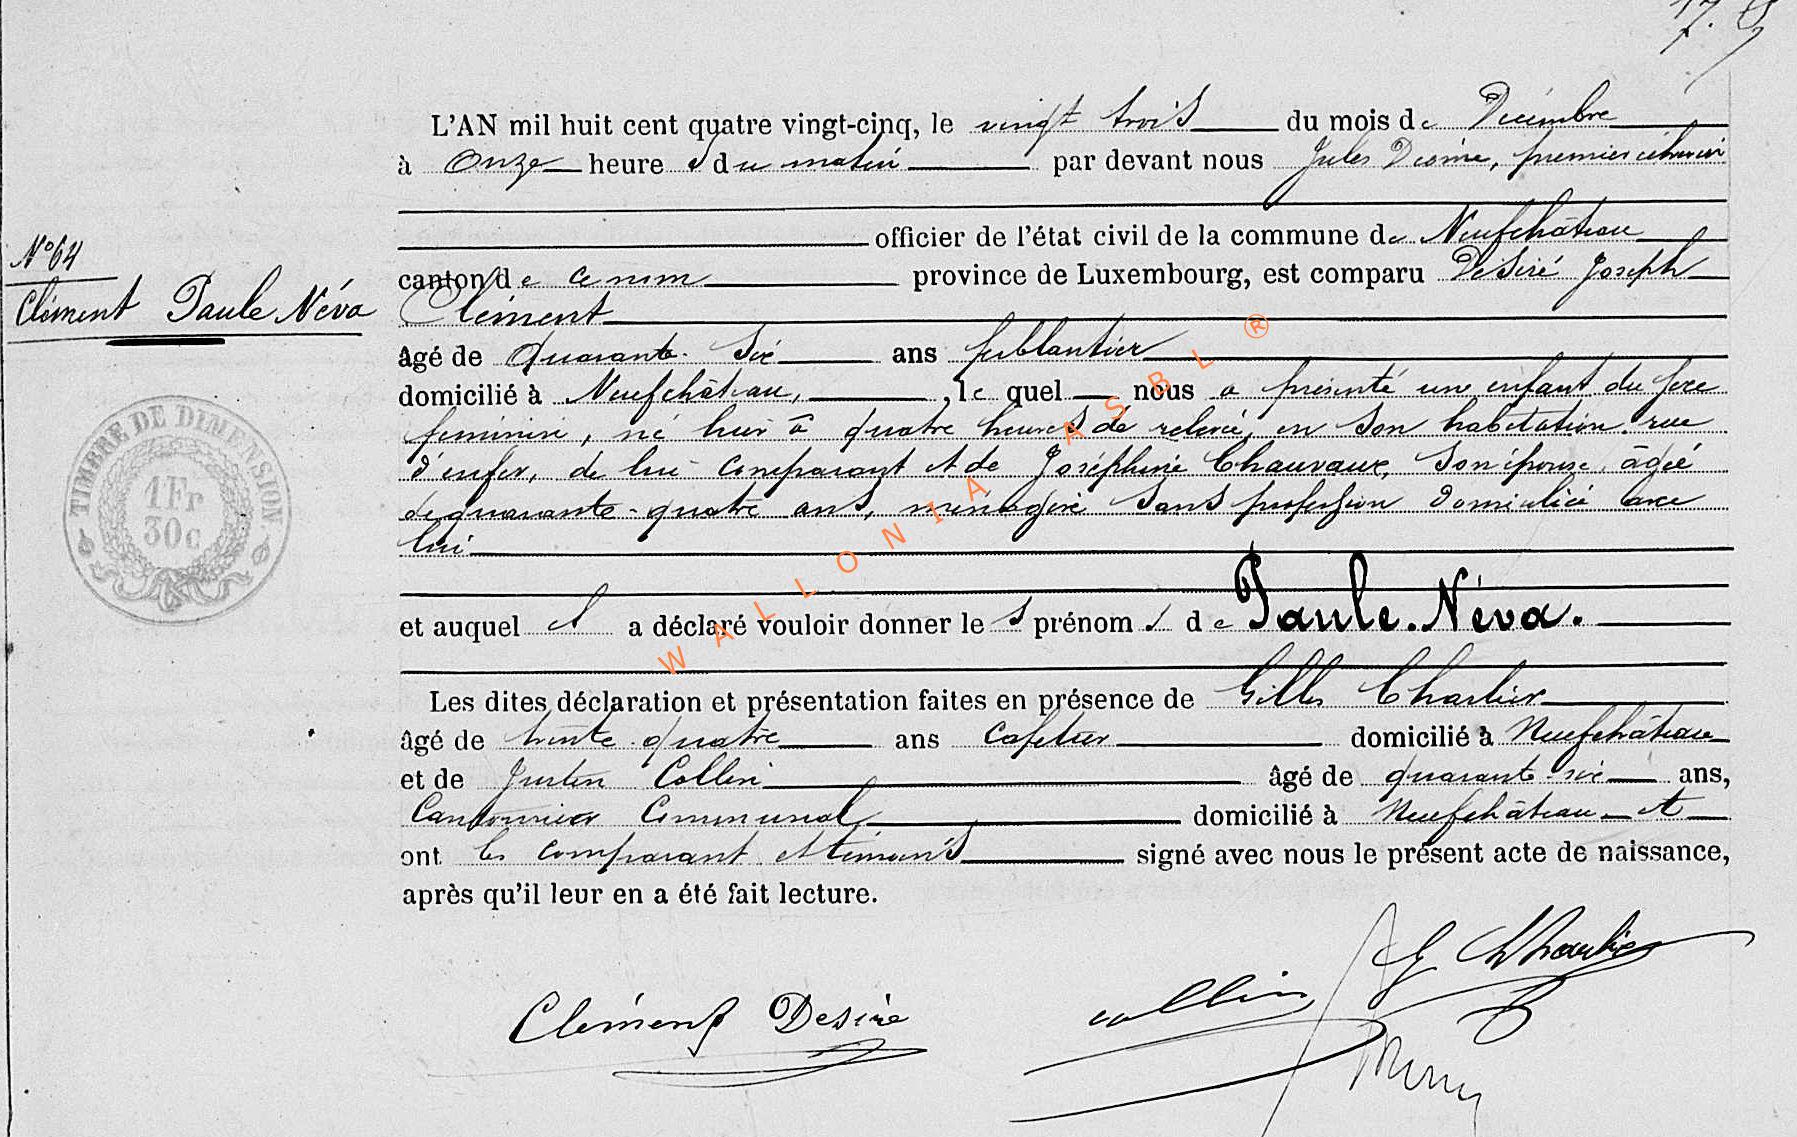 L'AN mil huit cent quatre vingt-cinq, le vingt trois du mois de Décembre
à Onze heures du matin par devant nous Jules premier échevin
officier de l'état civil de la commune de Neufchâteau
canton de ce nom province de Luxembourg, est comparu Désiré Joseph
N° 64
Clément Paule Néva
Clément
âgé de quarante-six ans ferblantier
domicilié à Neufchâteau, le quel nous a présenté une enfant du sexe
féminin, né hier à quatre heures de relevée, en son habitation rue
d'enfer, de lui comparant et de Joséphine Chauvaux, son épouse, âgée
de quarante-quatre ans, ménagère sans profession domiciliée avec
lui
TIMBRE DE DIMENSION.
1Fr
30c
et auquel il a déclaré vouloir donner les prénoms de Paule. Néva.
Les dites déclaration et présentation faites en présence de Gilles Charlier
âgé de trente-quatre ans cafetier domicilié à Neufchâteau
et de Justin Collin âgé de quarante-six ans,
Cantonnier Communal domicilié à Neufchâteau et
ont les comparant et témoins signé avec nous le présent acte de naissance,
après qu'il leur en a été fait lecture.
Clément Désiré
Collin
G Charlier
WALLONIA ASBL ®